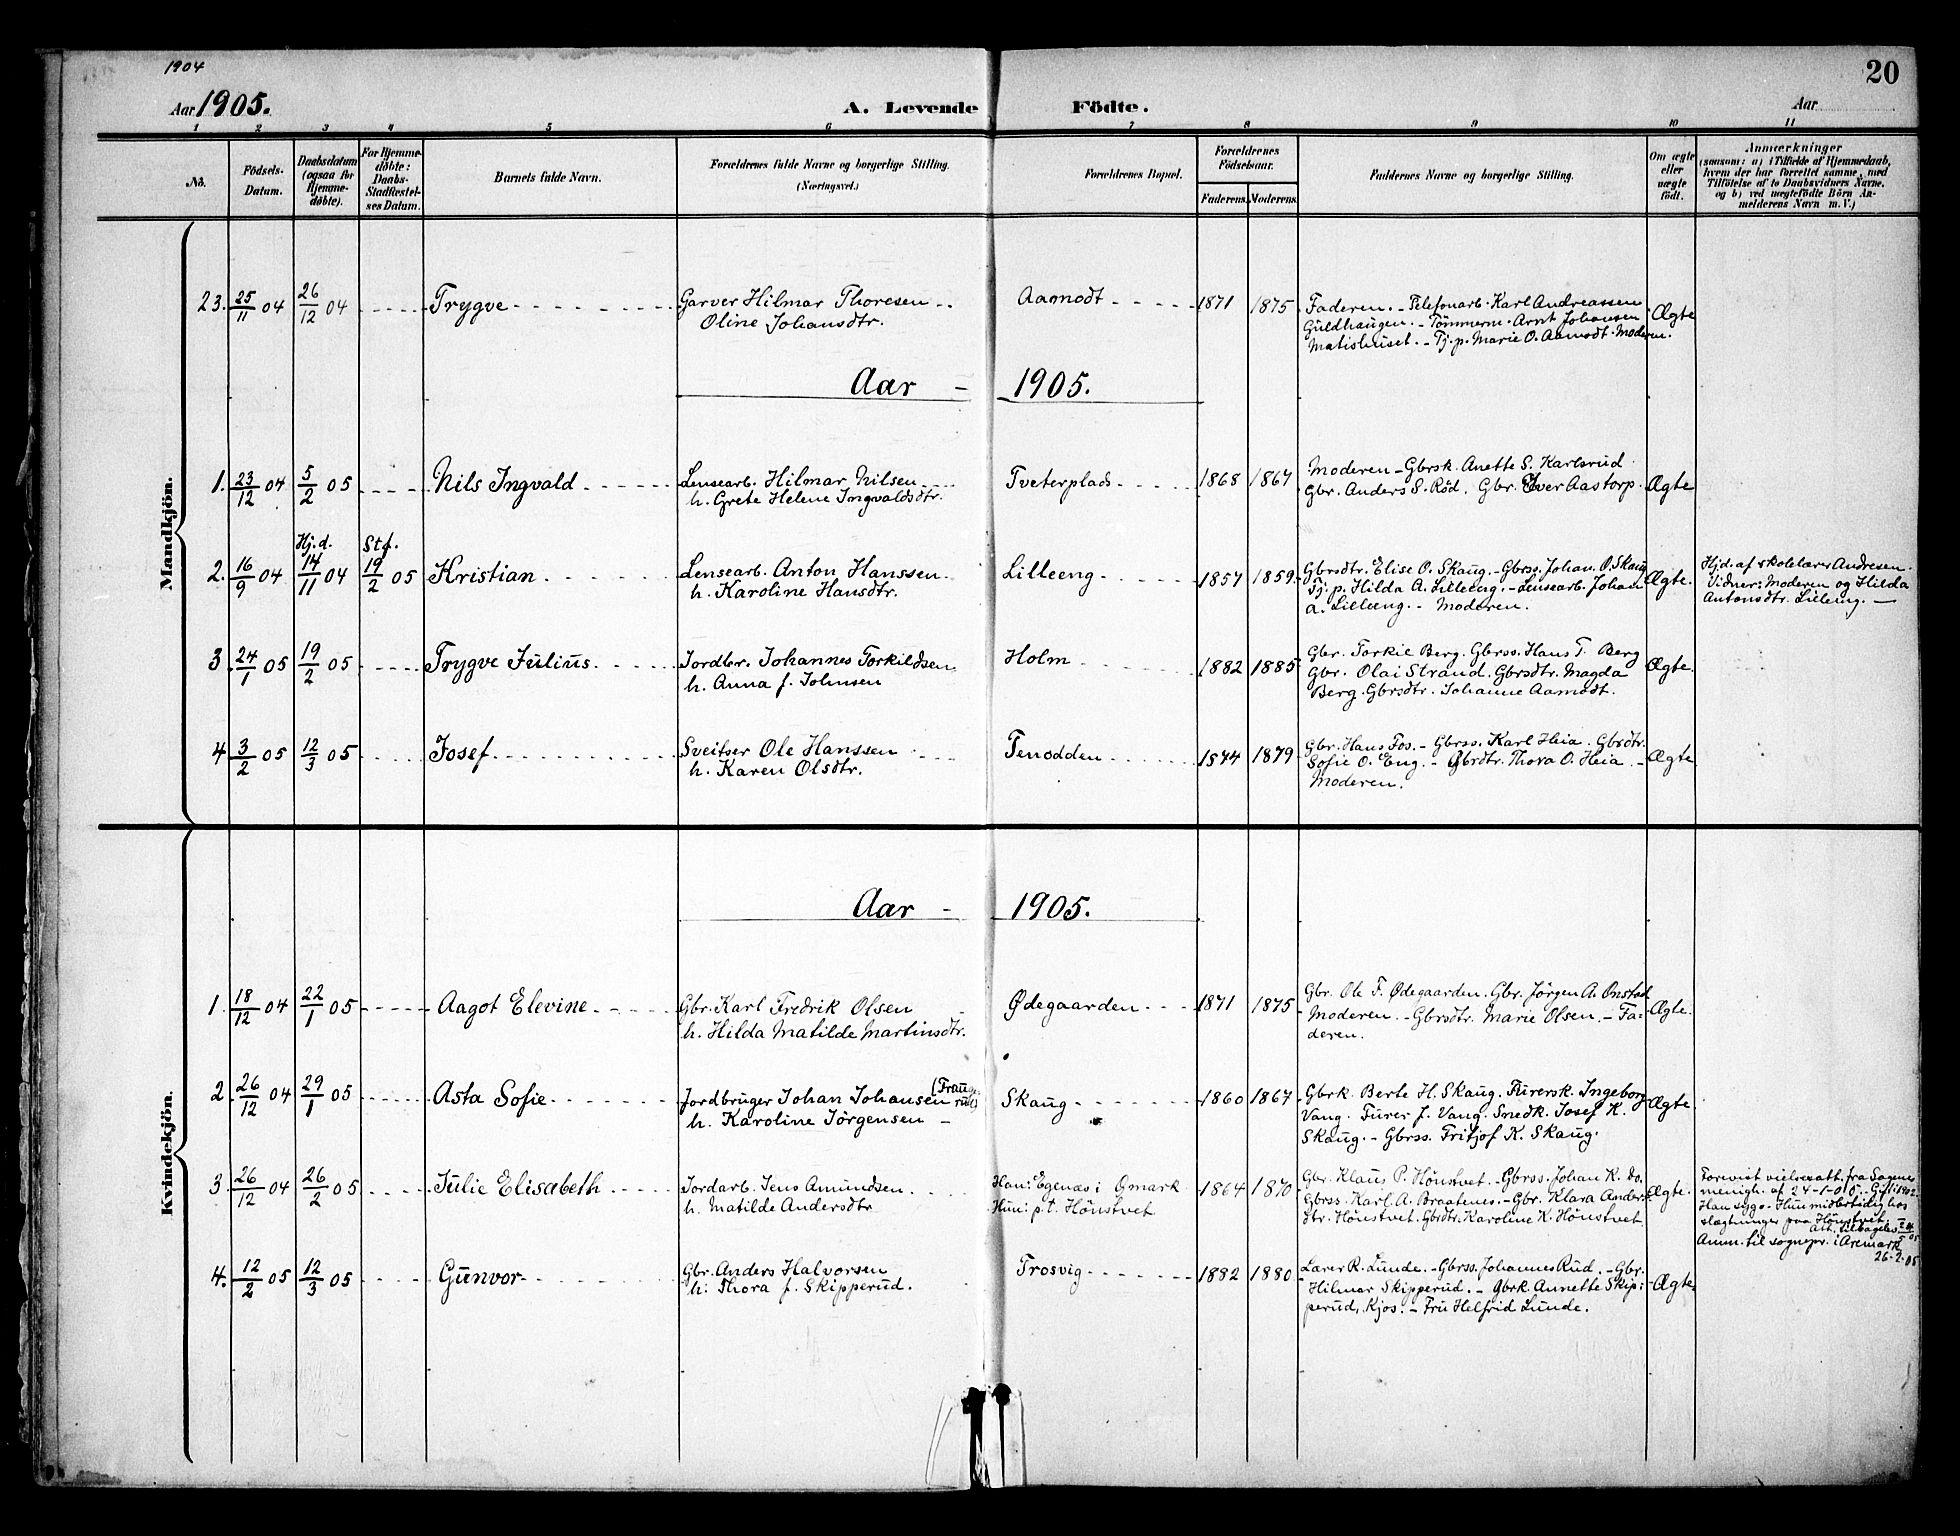 1904
20
Aar 1905.
A. Levende Födte.
Aar
1 2 3 4 5 6 7 8 9 10 11
No.
Födsels-Datum.
Daabsdatum (ogsaa for Hjemme-døbte).
For Hjemme-døbte: Daabs-Stadfæstel-ses Datum.
Barnets fulde Navn.
Forældrenes fulde Navne og borgerlige Stilling.
(Næringsvei.)
Forældrenes Bopæl.
Forældrenes Fødselsaar.
Faderens. Moderens.
Faddernes Navne og borgerlige Stilling.
Om ægte eller uægte født.
Anmærkninger
(saasom: a) i Tilfælde af Hjemmedaab,
hvem der har forrettet samme, med
Tilføielse af to Daabsvidners Navne,
og b) ved uægtefödte Börn An-
melderens Navn m. V.)
Mandkjön.
23. 25/11 04 26/12 04 Trygve Garver Hilmar Thoresen Aamodt 1871 1875 Faderen. - Telefonarb. Karl Andreassen Ægte
Oline Johansdtr. Guldhaugen. - Tömmerm. Arnt Johansen
Matishuset. - Tj. p. Marie O. Aamodt. Moderen.
Aar - 1905.
1. 23/12 04 5/2 05 Nils Ingvald Lensearb. Hilmar Nilsen Tveterplads 1868 1867 Moderen - Gbrsk. Anette S. Karlsrud Ægte
h. Grete Helene Ingvaldsdtr. Gbr. Anders S. Röd. Gbr. Iver Aastorp.
Hj.d. Stf.
2. 16/9 04 14/11 04 19/2 05 Kristian Lensearb. Anton Hanssen Lilleeng 1857 1859 Gbrsdtr. Elise O. Skaug. - Gbrss. Johan O. Skaug Ægte. Hjd. af skolelærer Andresen.
h. Karoline Hansdtr. Tj. p. Hilda A. Lilleeng. - Lensearb. Johan Vidner: Moderen og Hilda
A. Lilleeng. - Moderen. Antonsdtr. Lilleeng. -
3 24/1 05 19/2 05 Trygve Julius Jordbr. Johannes Torkildsen Holm 1882 1885 Gbr. Torkil Berg. Gbrss. Hans T. Berg Ægte.
h. Anna f. Johnsen Gbr. Olai Strand. Gbrsdtr. Magda
Berg. Gbrsdtr. Johanne Aamodt.
4 3/2 05 12/3 05 Josef Sveitser Ole Hanssen Tenodden 1844 1879 Gbr. Hans Fos. - Gbrss. Karl Heia. Gbrdtr. Ægte
h. Karen Olsdtr. Sofie O. Eng. - Gbrdtr. Thora O. Heia. -
Moderen.
Kvindekjön.
Aar - 1905.
1. 18/12 04 22/1 05 Aagot Elevine Gbr. Karl Fredrik Olsen Ødegaarden 1871 1875 Gbr. Ole F. Ødegaarden. Gbr. Jörgen A. Onstad Ægte.
h. Hilda Matilde Martinsdtr. Moderen. - Gbrsdtr. Marie Olsen. - Fa-
deren.
2 26/12 04 29/1 05 Asta Sofie Jordbruger Johan Johansen Skaug 1860 1867 Gbrk. Berte H. Skaug. Furersk. Ingeborg Ægte.
h. Karoline Jörgensen - Vang. Furer J. Vang. Snedk. Josef K.
Skaug. - Gbrss. Fritjof K. Skaug.
3. 26/12 04 26/2 05 Julie Elisabeth Jordarb. Jens Amundsen Han: Egenæs i Ømark 1864 1870 Gbr. Klaus P. Hönsvet. - Gbrss. Johan K. do. Ægte. Forevist vielsesatt. fra Sognem
h. Matilde Andersdtr Hun: p.t. Hönstvet Gbrss. Karl A. Braatenes. - Gbr. Klara Anders- menigh. af 24-1-05. Gift 1902.
dtr. Hönstvet. Gbrdtr. Karoline K. Hönstvet Han syge. Hun midlertidig hos
slægtninger paa Hönstvet. -
Att. tilbagelev.
Anm. til sognepr. i Aremark
26-2-05
4. 12/2 05 12/3 05 Gunvor Gbr. Anders Halvorsen Trosvig 1882 1880 Lærer R. Lunde. - Gbrss. Johannes Rud. - Gbr. Ægte.
h: Thora f. Skipperud. Hilmar Skipperud. - Gbrk. Annette Skip:
perud, Kjos. - Fru Helfrid Lunde.